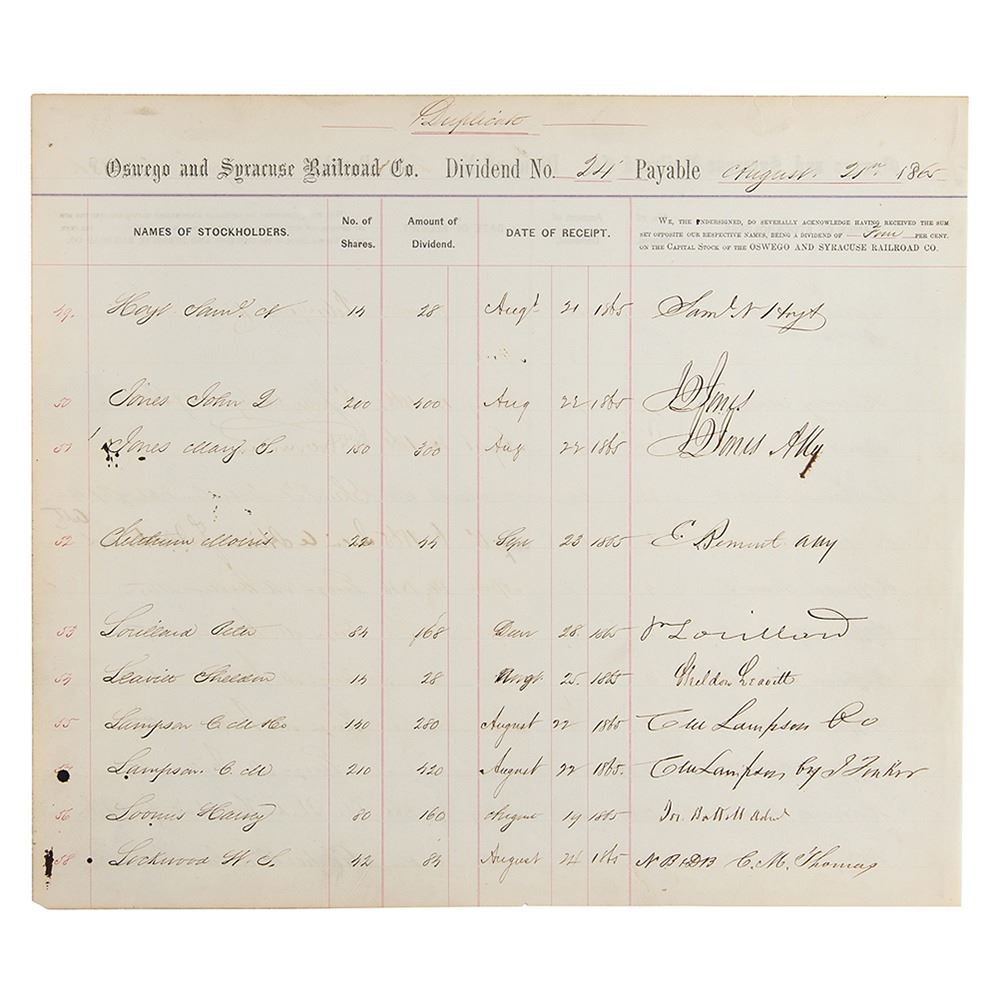 Duplicate
Oswego and Syracuse Railroad Co. Dividend No. 24 Payable August 21st 1865
NAMES OF STOCKHOLDERS. No. of Shares. Amount of Dividend. DATE OF RECEIPT. WE, THE UNDERSIGNED, DO SEVERALLY ACKNOWLEDGE HAVING RECEIVED THE SUM
SET OPPOSITE OUR RESPECTIVE NAMES, BEING A DIVIDEND OF Four PER CENT.
ON THE CAPITAL STOCK OF THE OSWEGO AND SYRACUSE RAILROAD CO.
49. Hoyt Saml. N 14 28 Augt 21 1865 Saml N Hoyt
50 Jones John J 200 400 Aug 22 1865 J J Jones
51 Jones Mary S. 150 300 Aug 22 1865 J J Jones Atty
52 Ketchum Morris 22 44 Sept 23 1865 E Bement atty
53 Lorillard Peter 84 168 28 1865 P Lorillard
54 Leavitt Sheldon 14 28 Augt 25. 1865 Sheldon Leavitt
55 Lampson C. M & Co 140 280 August 22 1865 C M Lampson & Co
Lampson. C. M 210 420 August 22 1865. C M Lampson by J
56 Loomis Harvey 80 160 August 19 1865
58 Lockwood H. S. 42 84 August 24 1865 C. M. Thomas